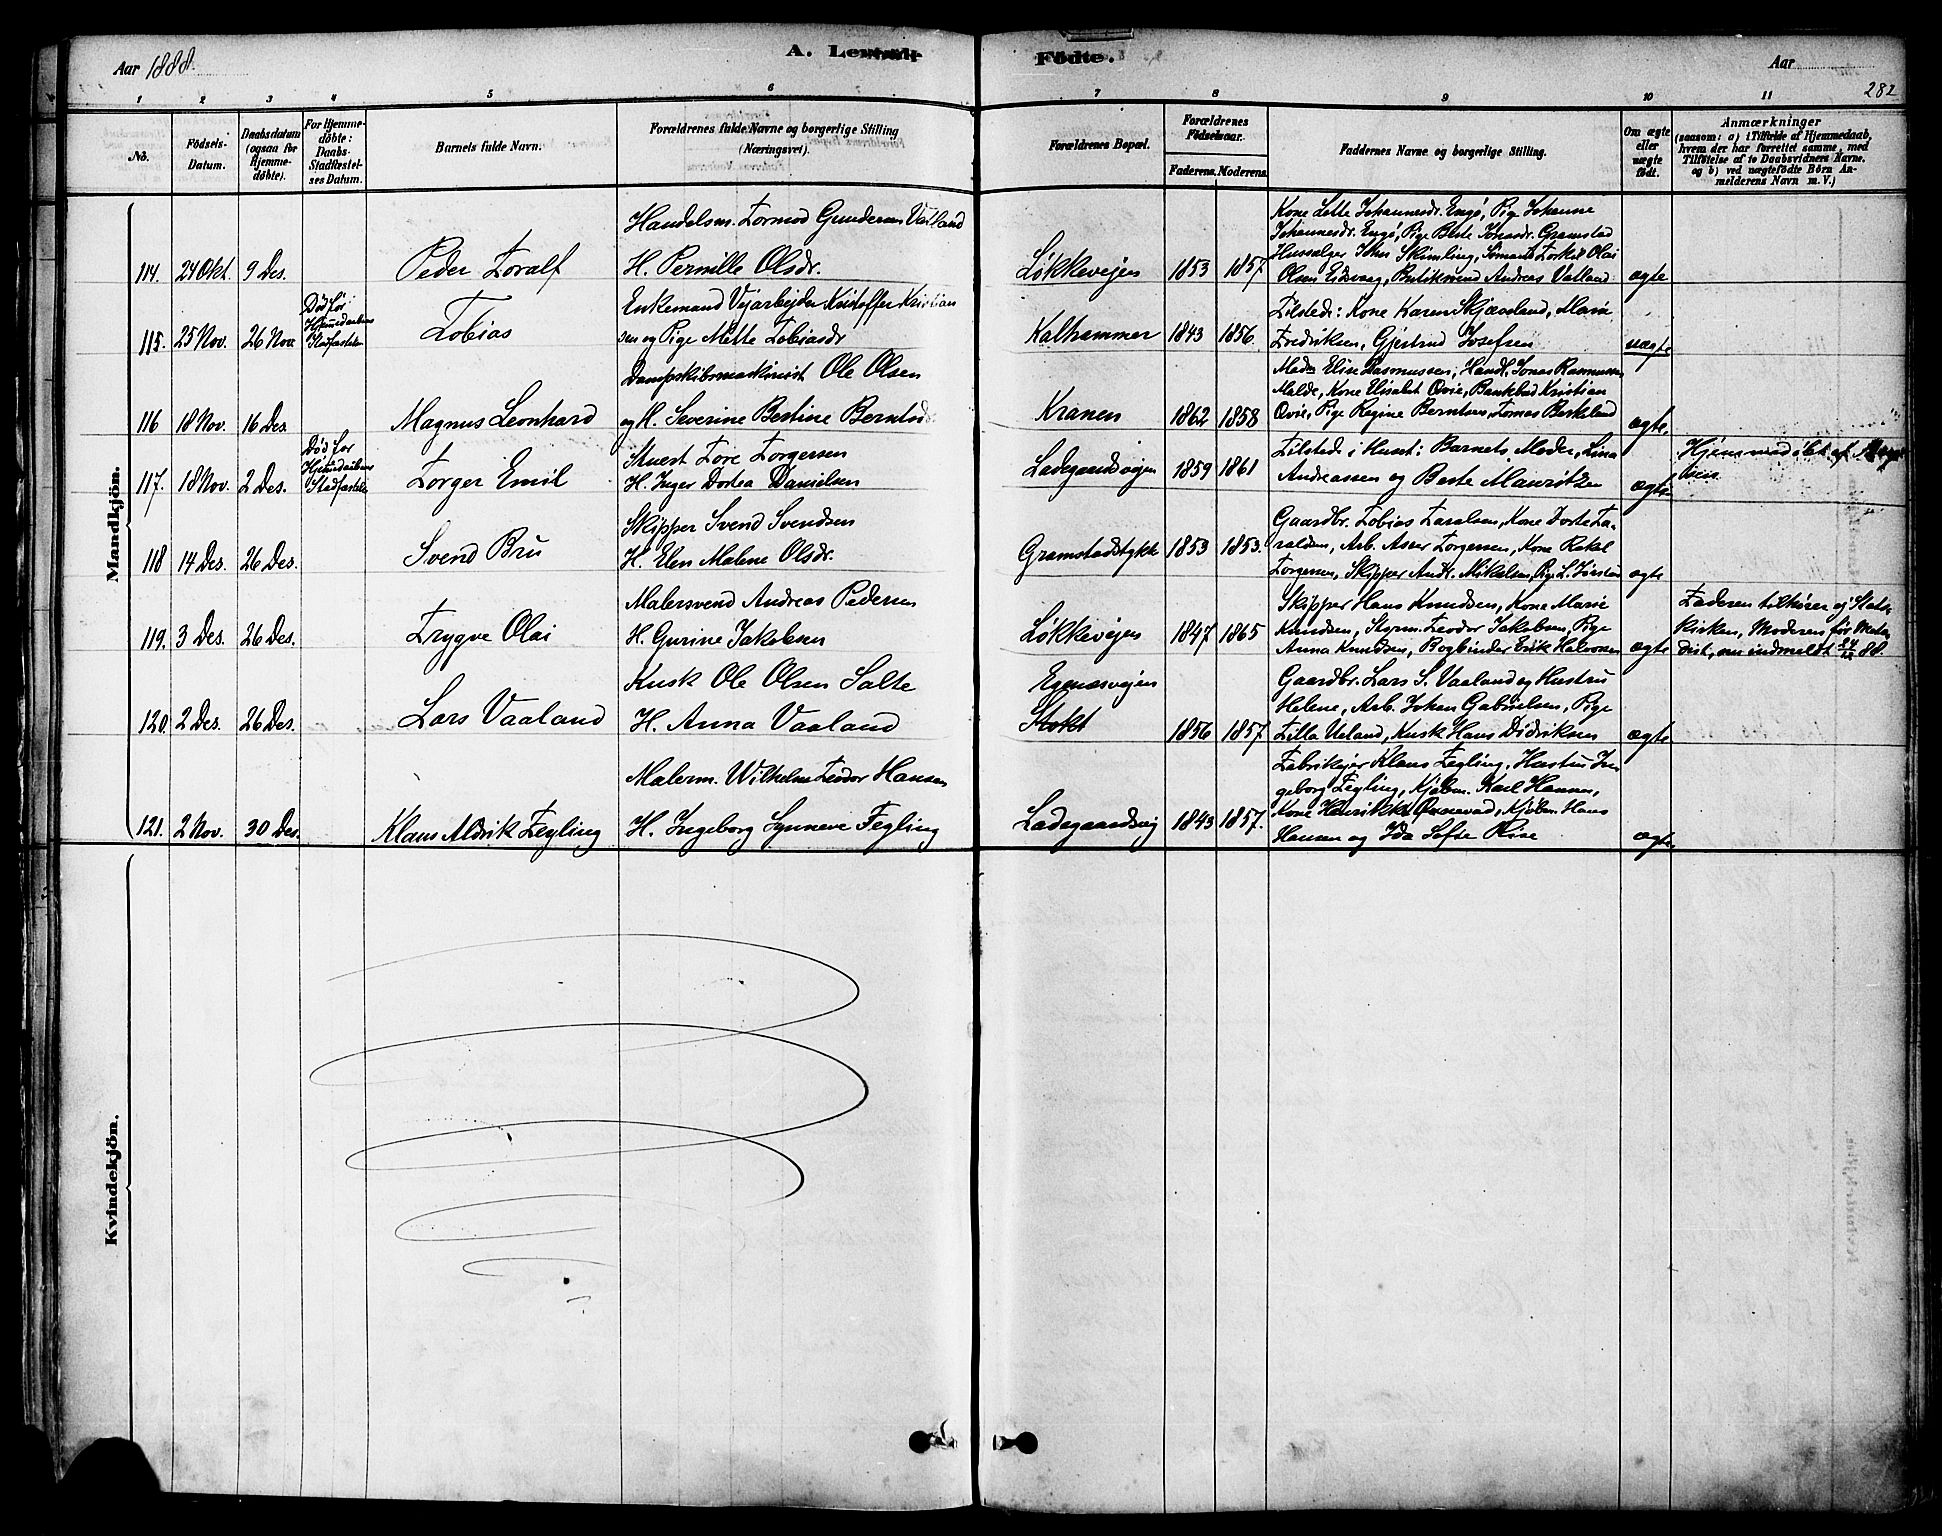 Aar 1888.
A. Levende
Födte.
Aar
282
1 2 3 4 5 6 7 8 9 10 11
No.
Födsels-
Datum.
Daabsdatum
(ogsaa for
Hjemme-
døbte).
For Hjemme-
döbte:
Daabs-
Stadfæstel-
ses Datum.
Barnets fulde Navn.
Forældrenes fulde Navne og borgerlige Stilling
(Næringsvei).
Forældrenes Bopæl.
Forældrenes
Födselsaar.
Faderens. Moderens.
Faddernes Navne og borgerlige Stilling.
Om ægte
eller
uægte
födt.
Anmærkninger
(saasom: a) i Tilfælde af Hjemmedaab,
hvem der har forrettet samme, med
Tilföielse af to Daabsvidners Navne.
og b) ved uægtefödte Börn An-
melderens Navn m. V.)
Mandkjön.
114. 24 Okt. 9 Des.
Peder Toralf
Handelsm. Tormod Gundersen Vatland
H. Pernille Olsdr.
Løkkevejen 1853 1857
Kone Lotte Johannesdr. Engø, Pige Johanne
Johannesdr. Engø, Pige Berte Jonasdr. Gramstad
Husselger John Skimling, Tomas Torkel Olai
Olsen Eidsvaag, Butiksvend Andreas Vatland.
ægte
115. 25 Nov. 26 Nov.
Død før
Hjemmedaabens
Stadfæstelse
Tobias
Enkemand Vejarbejder Kristoffer Kristian
sen og Pige Mette Tobiasdr
Kalhammer 1843 1856.
Tilstede: Kone Karen Skjæveland, Marie
Fredriksen, Gjertrud Josefsen
uægte
116 18 Nov. 16 Des.
Magnus Leonhard
Dampskibsmaskinist Ole Olsen
og H. Severine Bertine Berntsd.
Kranen 1862 1858
Mad. Elise Rasmussen, Handl. Jonas Rasmussen
Malde, Kone Elisabet Qvie, Bankbud Kristian
Qvie, Pige Regine Berntsen, Tomas Berkeland
ægte.
117. 18 Nov. 2 Des.
Død før
Hjemmedaabens
Stadfæstelse
Torger Emil
Stuert Tore Torgersen
H. Inger Dortea Danielsen
Ladegaardsvejen 1859 1861
Tilstede i Huset: Barnets Moder, Lina
Andreassen og Berte Mauritzen
ægte
Hjemmedøbt af
118 14 Des. 26 Des.
Svend Bru
Skipper Svend Svendsen
H. Elen Malene Olsdr.
Gramstadstykke 1853 1853.
Gaardbr. Tobias Taralsen, Kone Dorte Ta-
raldsen, Arb. Aser Torgersen, Kone Rakel
Torgersen, Skipper Andr. Mikelsen, Pige L.
ægte
119. 3 Des. 26 Des.
Trygve Olai
Malersvend Andreas Pedersen
H. Gurine Jakobsen
Løkkevejen 1847 1865
Skipper Hans Knudsen, Kone Marie
Knudsen, Styrm. Teodor Jakobsen, Pige
Anna Knudsen, Bogbinder Erik Halvorsen
ægte
Faderen tilhører ej Stats-
kirken, Moderen før Meto-
dist, nu indmeldt 24/12 88.
120. 2 Des. 26 Des.
Lars Vaaland
Kusk Ole Olsen Salte
H. Anna Vaaland
Egenæsvejen
Stokt 1856 1857.
Gaardbr. Lars S. Vaaland og Hustru
Helene, Arb. Johan Gabrielsen, Pige
Tilla Ueland, Kusk Hans Didriksen
ægte
121. 2 Nov. 30 Des.
Klaus Aldrik Tegling
Malerm. Wilhelm Teodor Hansen
H. Ingeborg Synneve Fegling
Ladegaardsvej 1843 1857.
Fabrikejer Klaus Fegling, Hustru In-
geborg Fegling, Kjøbm. Karl Hansen,
Kone Henrikke Qvnevad, Kjøbm. Hans
Hansen og Ida Sofie Riise
ægte
Kvindekjön.